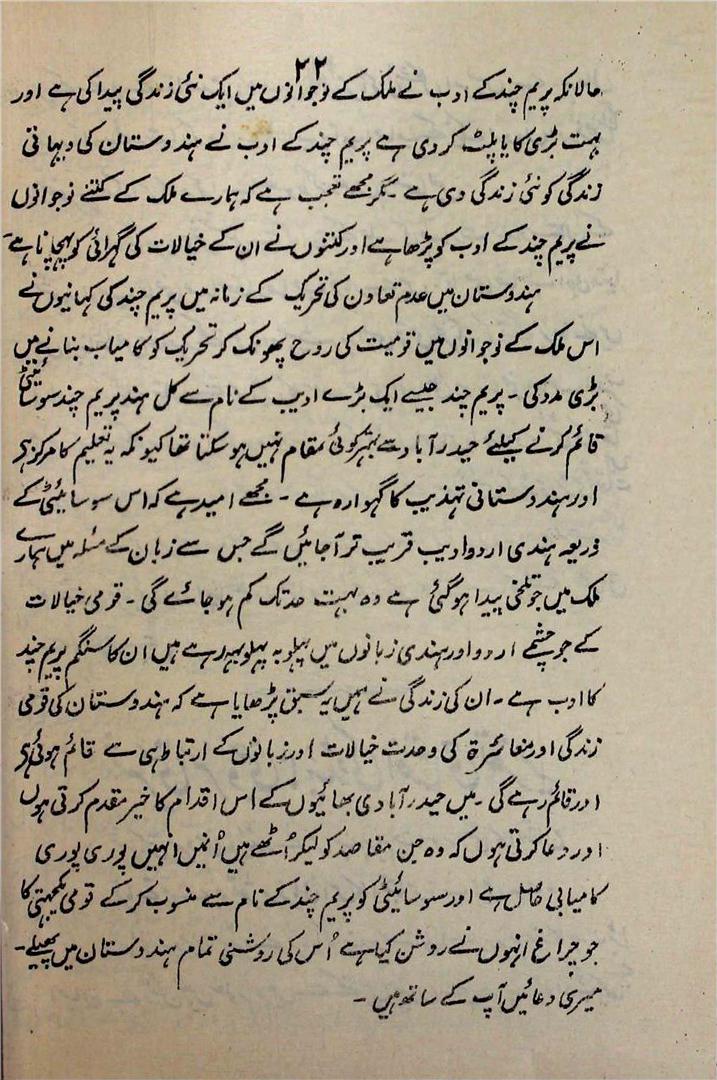 ۲۲
حالانکہ پریم چند کے ادب نے ملک کے نوجوانوں میں ایک نئی زندگی پیدا کی ہے اور
بہت بڑی کایا پلٹ کر دی ہے پریم چند کے ادب نے ہندوستان کی دیہاتی
زندگی کو نئی زندگی دی ہے ۔ مگر مجھے تعجب ہے کہ ہمارے ملک کے کتنے نوجوانوں
نے پریم چند کے ادب کو پڑھا ہے اور کتنوں نے ان کے خیالات کی گہرائی کو پہچانا ہے ۔
ہندوستان میں عدم تعاون کی تحریک کے زمانہ میں پریم چند کی کہانیوں نے
اس ملک کے نوجوانوں میں قومیت کی روح پھونک کر تحریک کو کامیاب بنانے میں
بڑی مدد کی ۔ پریم چند جیسے ایک بڑے ادیب کے نام سے کل ہند پریم چند سوسائیٹی
قائم کرنے کیلئے حیدرآباد سے بہتر کوئی مقام نہیں ہو سکتا تھا کیونکہ یہ تعلیم کا مرکز ہے
اور ہندوستانی تہذیب کا گہوارہ ہے ۔ مجھے امید ہے کہ اس سوسائیٹی کے
ذریعہ ہندی اردو ادیب قریب تر آجائیں گے جس سے زبان کے مسئلہ میں ہمارے
ملک میں جو تلخی پیدا ہوگئی ہے وہ بہت حد تک کم ہو جائے گی ۔ قومی خیالات
کے جو چشمے اردو اور ہندی زبانوں میں پہلو بہ پہلو بہہ رہے ہیں ان کا سنگم پریم چند
کا ادب ہے ۔ ان کی زندگی نے ہمیں یہ سبق پڑھایا ہے کہ ہندوستان کی قومی
زندگی اور معاشرہ کی وحدت خیالات اور زبانوں کے ارتباط ہی سے قائم ہوئی ہے
اور قائم رہے گی ۔ میں حیدرآبادی بھائیوں کے اس اقدام کا خیر مقدم کرتی ہوں
اور دعا کرتی ہوں کہ وہ جن مقاصد کو لیکر اُٹھے ہیں اُنیں انہیں پوری پوری
کامیابی حاصل ہے اور سوسائیٹی کو پریم چند کے نام سے منسوب کر کے قومی یکجہتی کا
جو چراغ انہوں نے روشن کیا ہے اُس کی روشنی تمام ہندوستان میں پھیلے ۔
میری دعائیں آپ کے ساتھ ہیں ۔